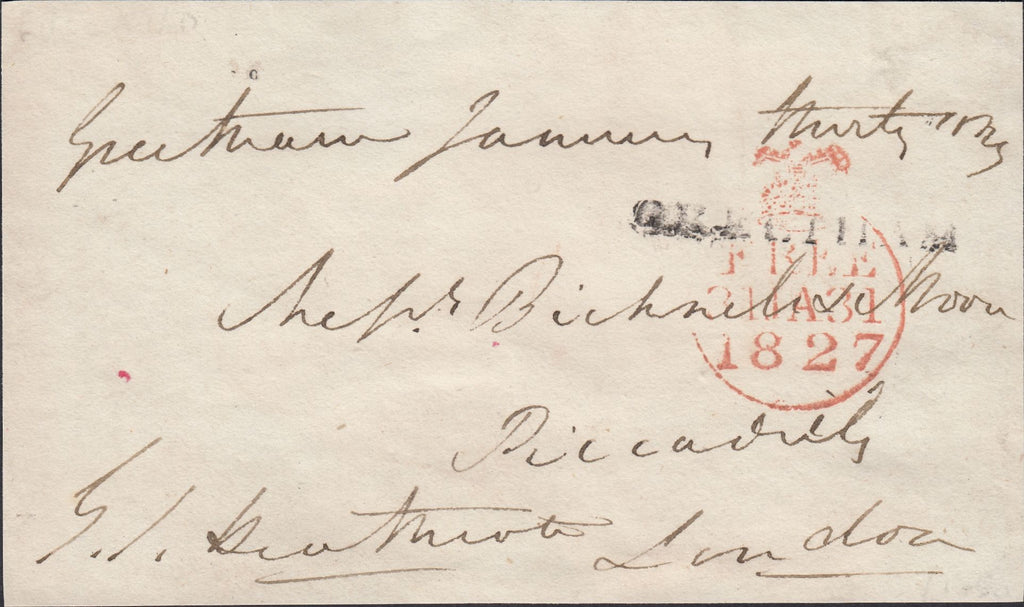 Greetham January thirty
GREETHAM
FREE
31 JA 31
1827
Messrs. Bicknel & Moon
Piccadilly
G. J. Heathcote London